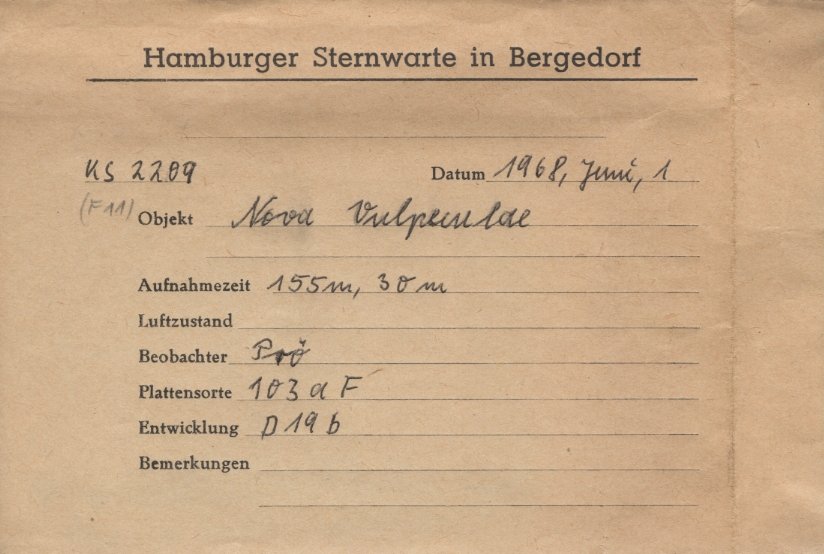 Hamburger Sternwarte in Bergedorf
KS 2209 Datum 1968, Juni, 1
(F11) Objekt Nova Vulpeculae
Aufnahmezeit 155m, 30m
Luftzustand
Beobachter Prö
Plattensorte 103 a F
Entwicklung D 19 b
Bemerkungen